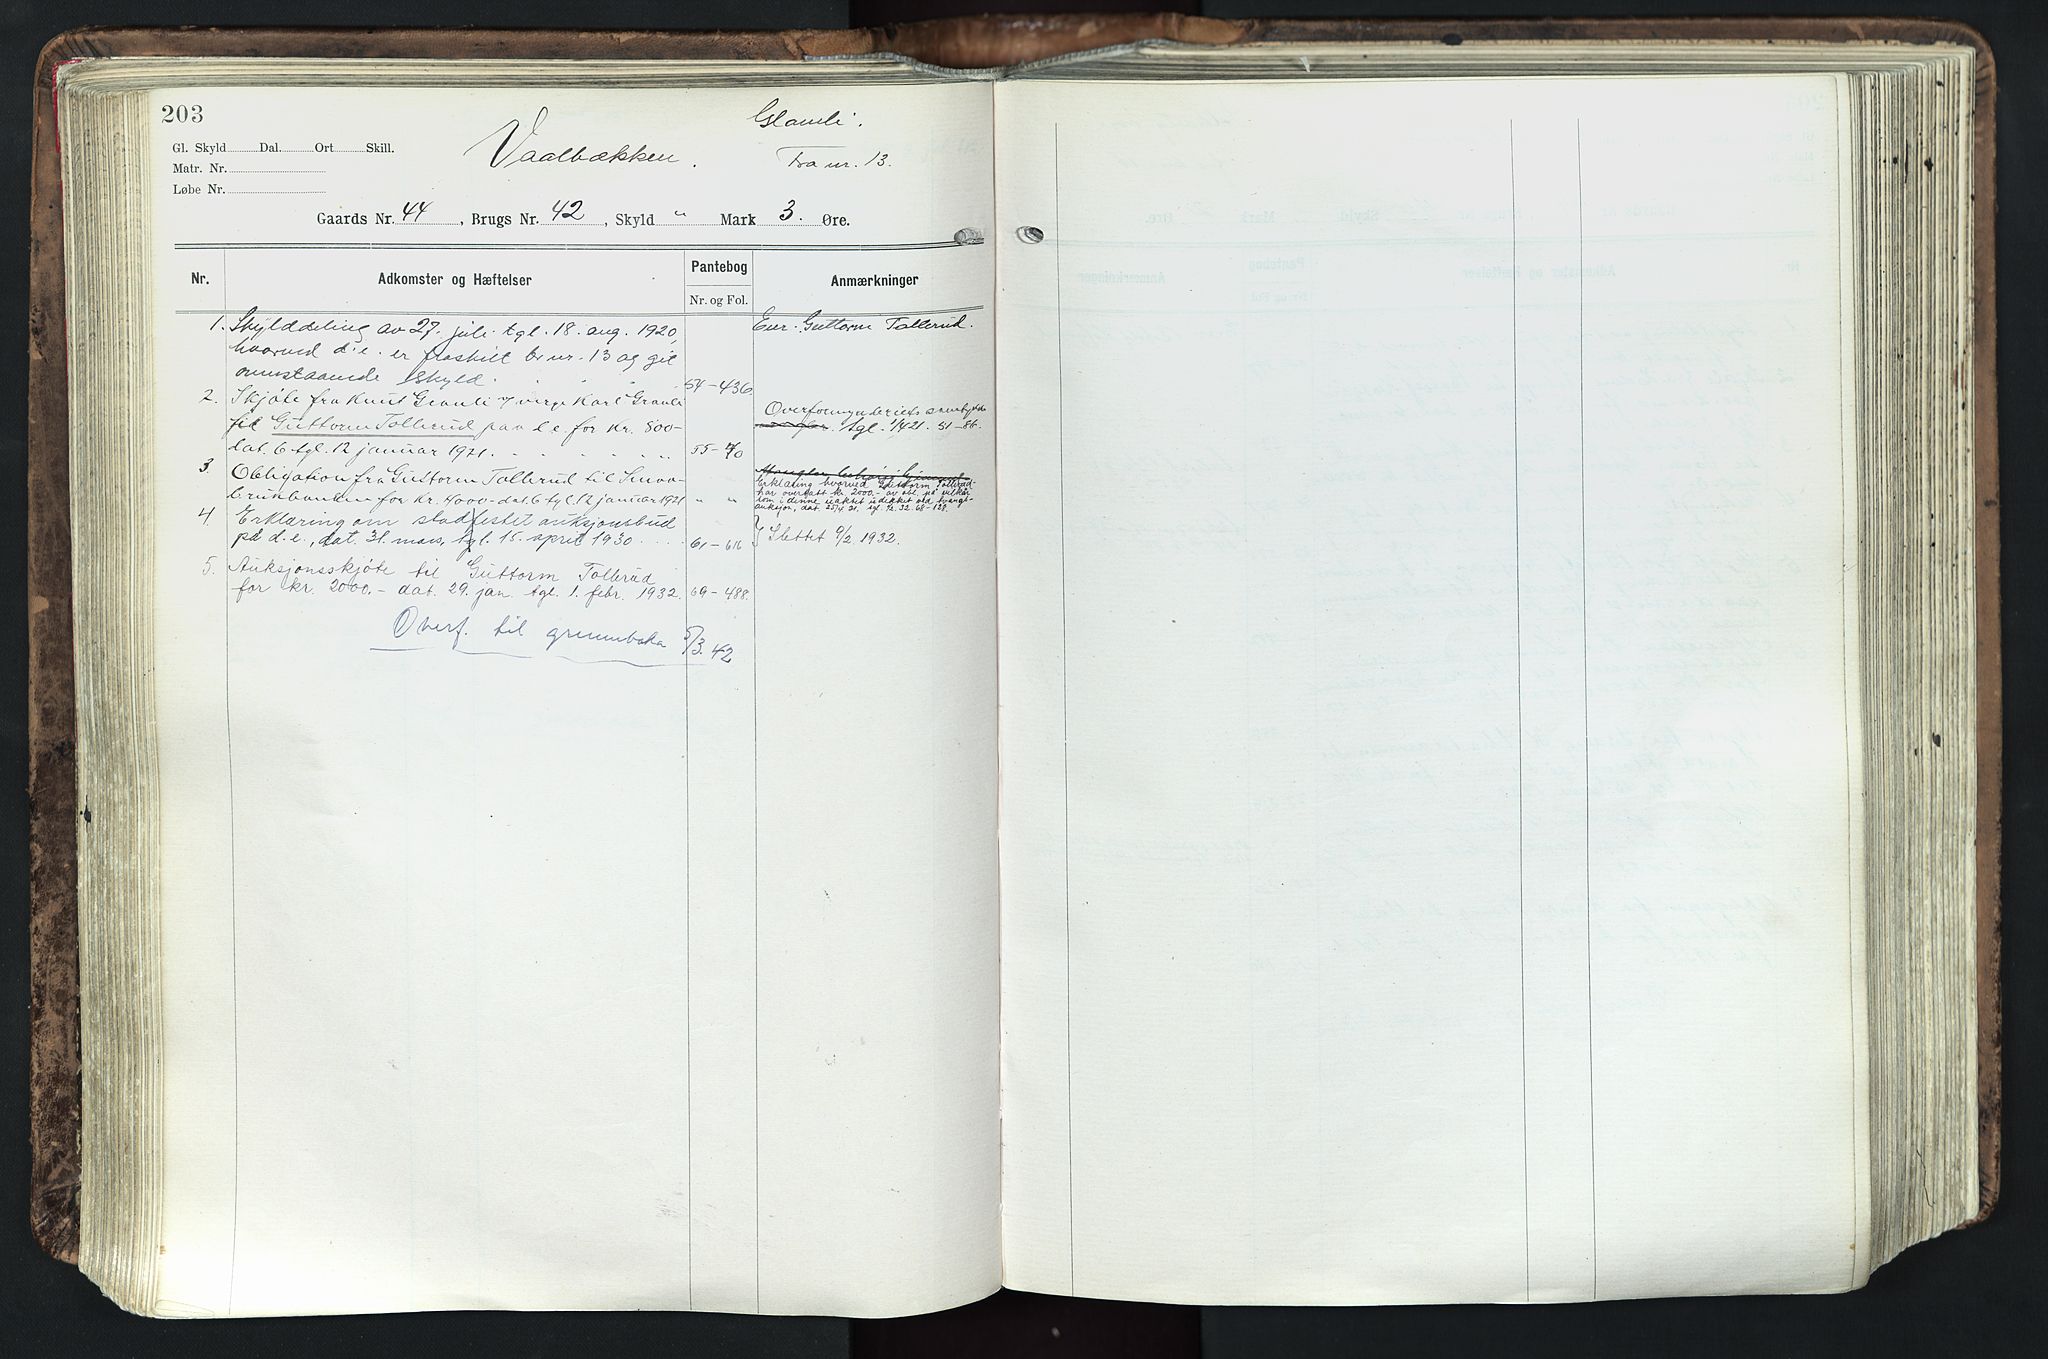 203
Glamli.
Gl. Skyld Dal. Ort Skill.
Vaalbækken.
Fra nr. 13.
Matr. Nr.
Løbe Nr.
Gaards Nr. 44, Brugs Nr. 42, Skyld " Mark 3. Øre.
Nr.
Adkomster og Hæftelser
Pantebog
Nr. og Fol.
Anmærkninger
1. Skylddeling av 27. juli tgl. 18. aug. 1920,
hvorved d.e. er fraskilt br nr. 13 og git
ovenstaaende skyld. 54-436
Eier: Guttorm Tollerud.
2. Skjøte fra Knut Granli v/ verge Karl Granli
til Guttorm Tollerud paa d.e. for kr. 500-
dat. 6 tgl. 12 januar 1921. 55-70
Overformynderiets samtykke
tgl. 1/4 21. 51-86.
3. Obligation fra Guttorm Tollerud til Smaa-
brukbanken for kr. 4000- dat. 6 tgl. 12 januar 1921 " "
Erklæring hvorved Guttorm Tollerud
har overtatt kr. 2000.- av obl. på vilkår
som i denne uaktet udekket ved tvangs-
auksjon, dat. 25/4 31. tgl. 32. 68-128.
4. Erklæring om stadfestet auksjonsbud
på d.e., dat. 31. mars, tgl. 15. april 1930. 61-616
Slettet 9/2 1932.
5. Auksjonsskjøte til Guttorm Tollerud
for kr. 2000.- dat. 29. jan. tgl. 1. febr. 1932. 69-488.
Overf. til grunnboka 5/3. 42